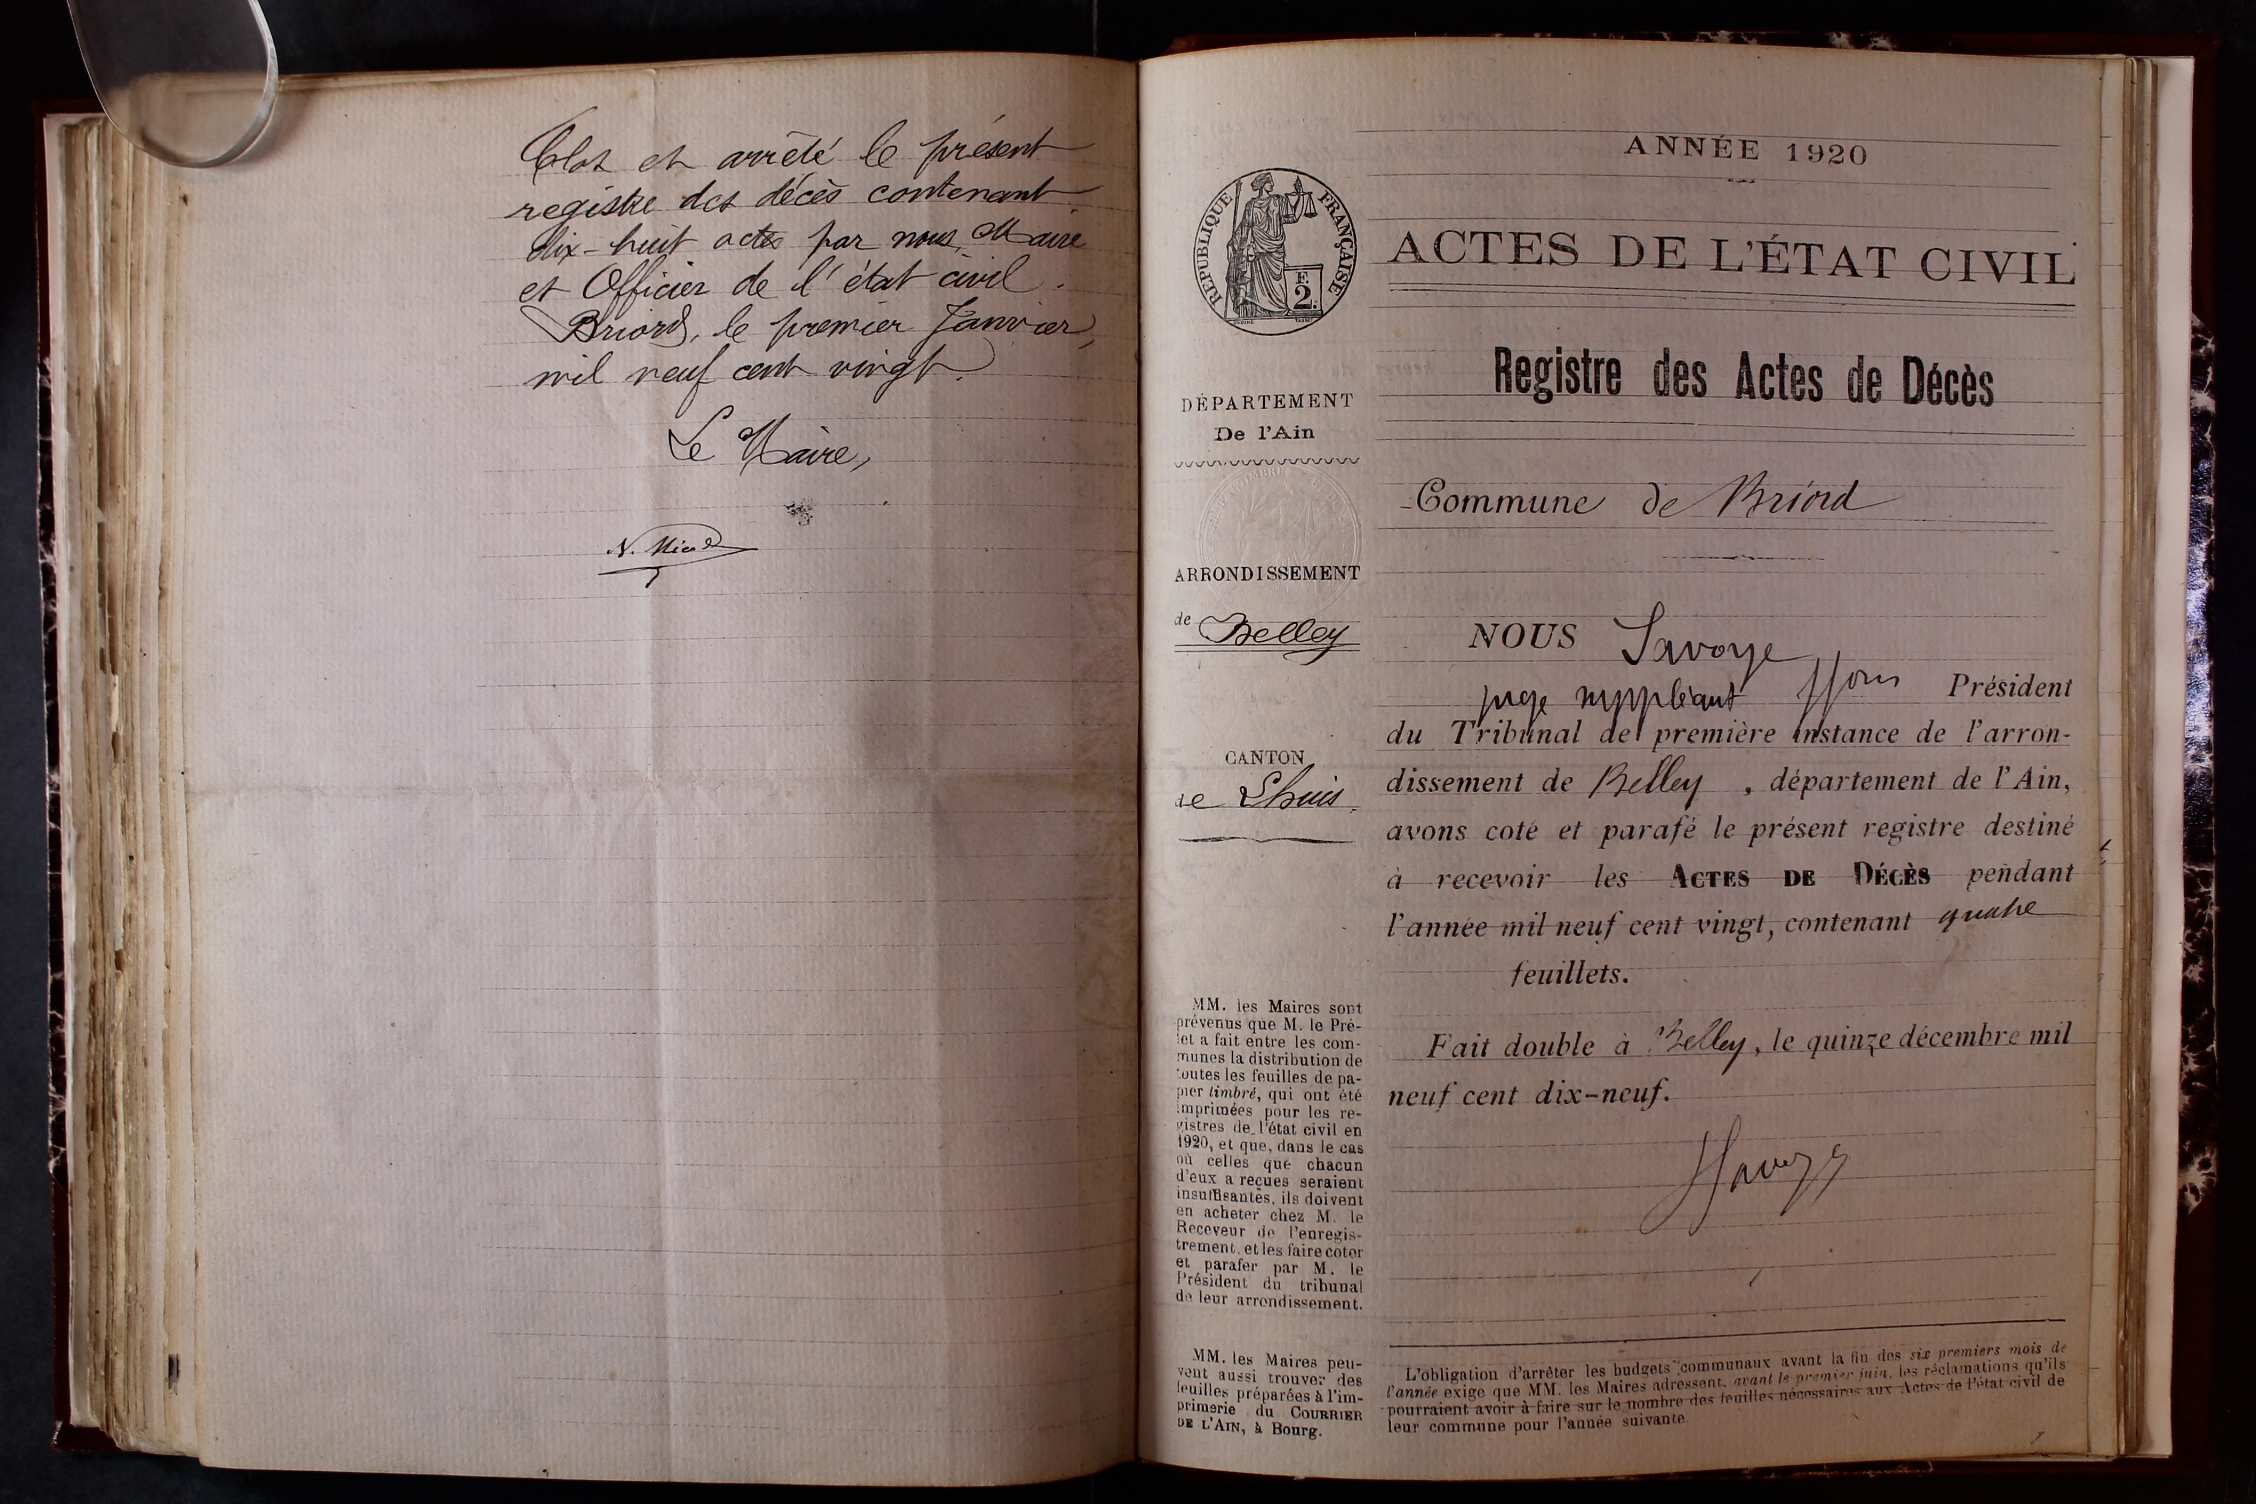 Clos et arrêté le présent
registre des décès contenant
dix-huit actes par nous, Maire
et Officier de l'état civil.
Briord, le premier Janvier,
mil neuf cent vingt.
Le Maire,
ANNÉE 1920
RÉPUBLIQUE FRANÇAISE
F.
2.
DÉPARTEMENT
De l'Ain
ARRONDISSEMENT
de Belley
CANTON
de Lhuis.
MM. les Maires sont
prévenus que M. le Pré-
fet a fait entre les com-
munes la distribution de
toutes les feuilles de pa-
pier timbré, qui ont été
imprimées pour les re-
gistres de l'état civil en
1920, et que, dans le cas
où celles que chacun
d'eux a reçues seraient
insuffisantes, ils doivent
en acheter chez M. le
Receveur de l'enregis-
trement, et les faire coter
et parafer par M. le
Président du tribunal
de leur arrondissement.
MM. les Maires peu-
vent aussi trouver des
feuilles préparées à l'im-
primerie du COURRIER
DE L'AIN, à Bourg.
ACTES DE L'ÉTAT CIVIL
Registre des Actes de Décès
Commune de Briord
NOUS Savoye
juge suppléant ffons Président
du Tribunal de première instance de l'arron-
dissement de Belley, département de l'Ain,
avons coté et parafé le présent registre destiné
à recevoir les ACTES DE DÉCÈS pendant
l'année mil neuf cent vingt, contenant quatre
feuillets.
Fait double à Belley, le quinze décembre mil
neuf cent dix-neuf.
Savoye
L'obligation d'arrêter les budgets communaux avant la fin des six premiers mois de
l'année exige que MM. les Maires adressent, avant le premier juin, les réclamations qu'ils
pourraient avoir à faire sur le nombre des feuilles nécessaires aux Actes de l'état civil de
leur commune pour l'année suivante.